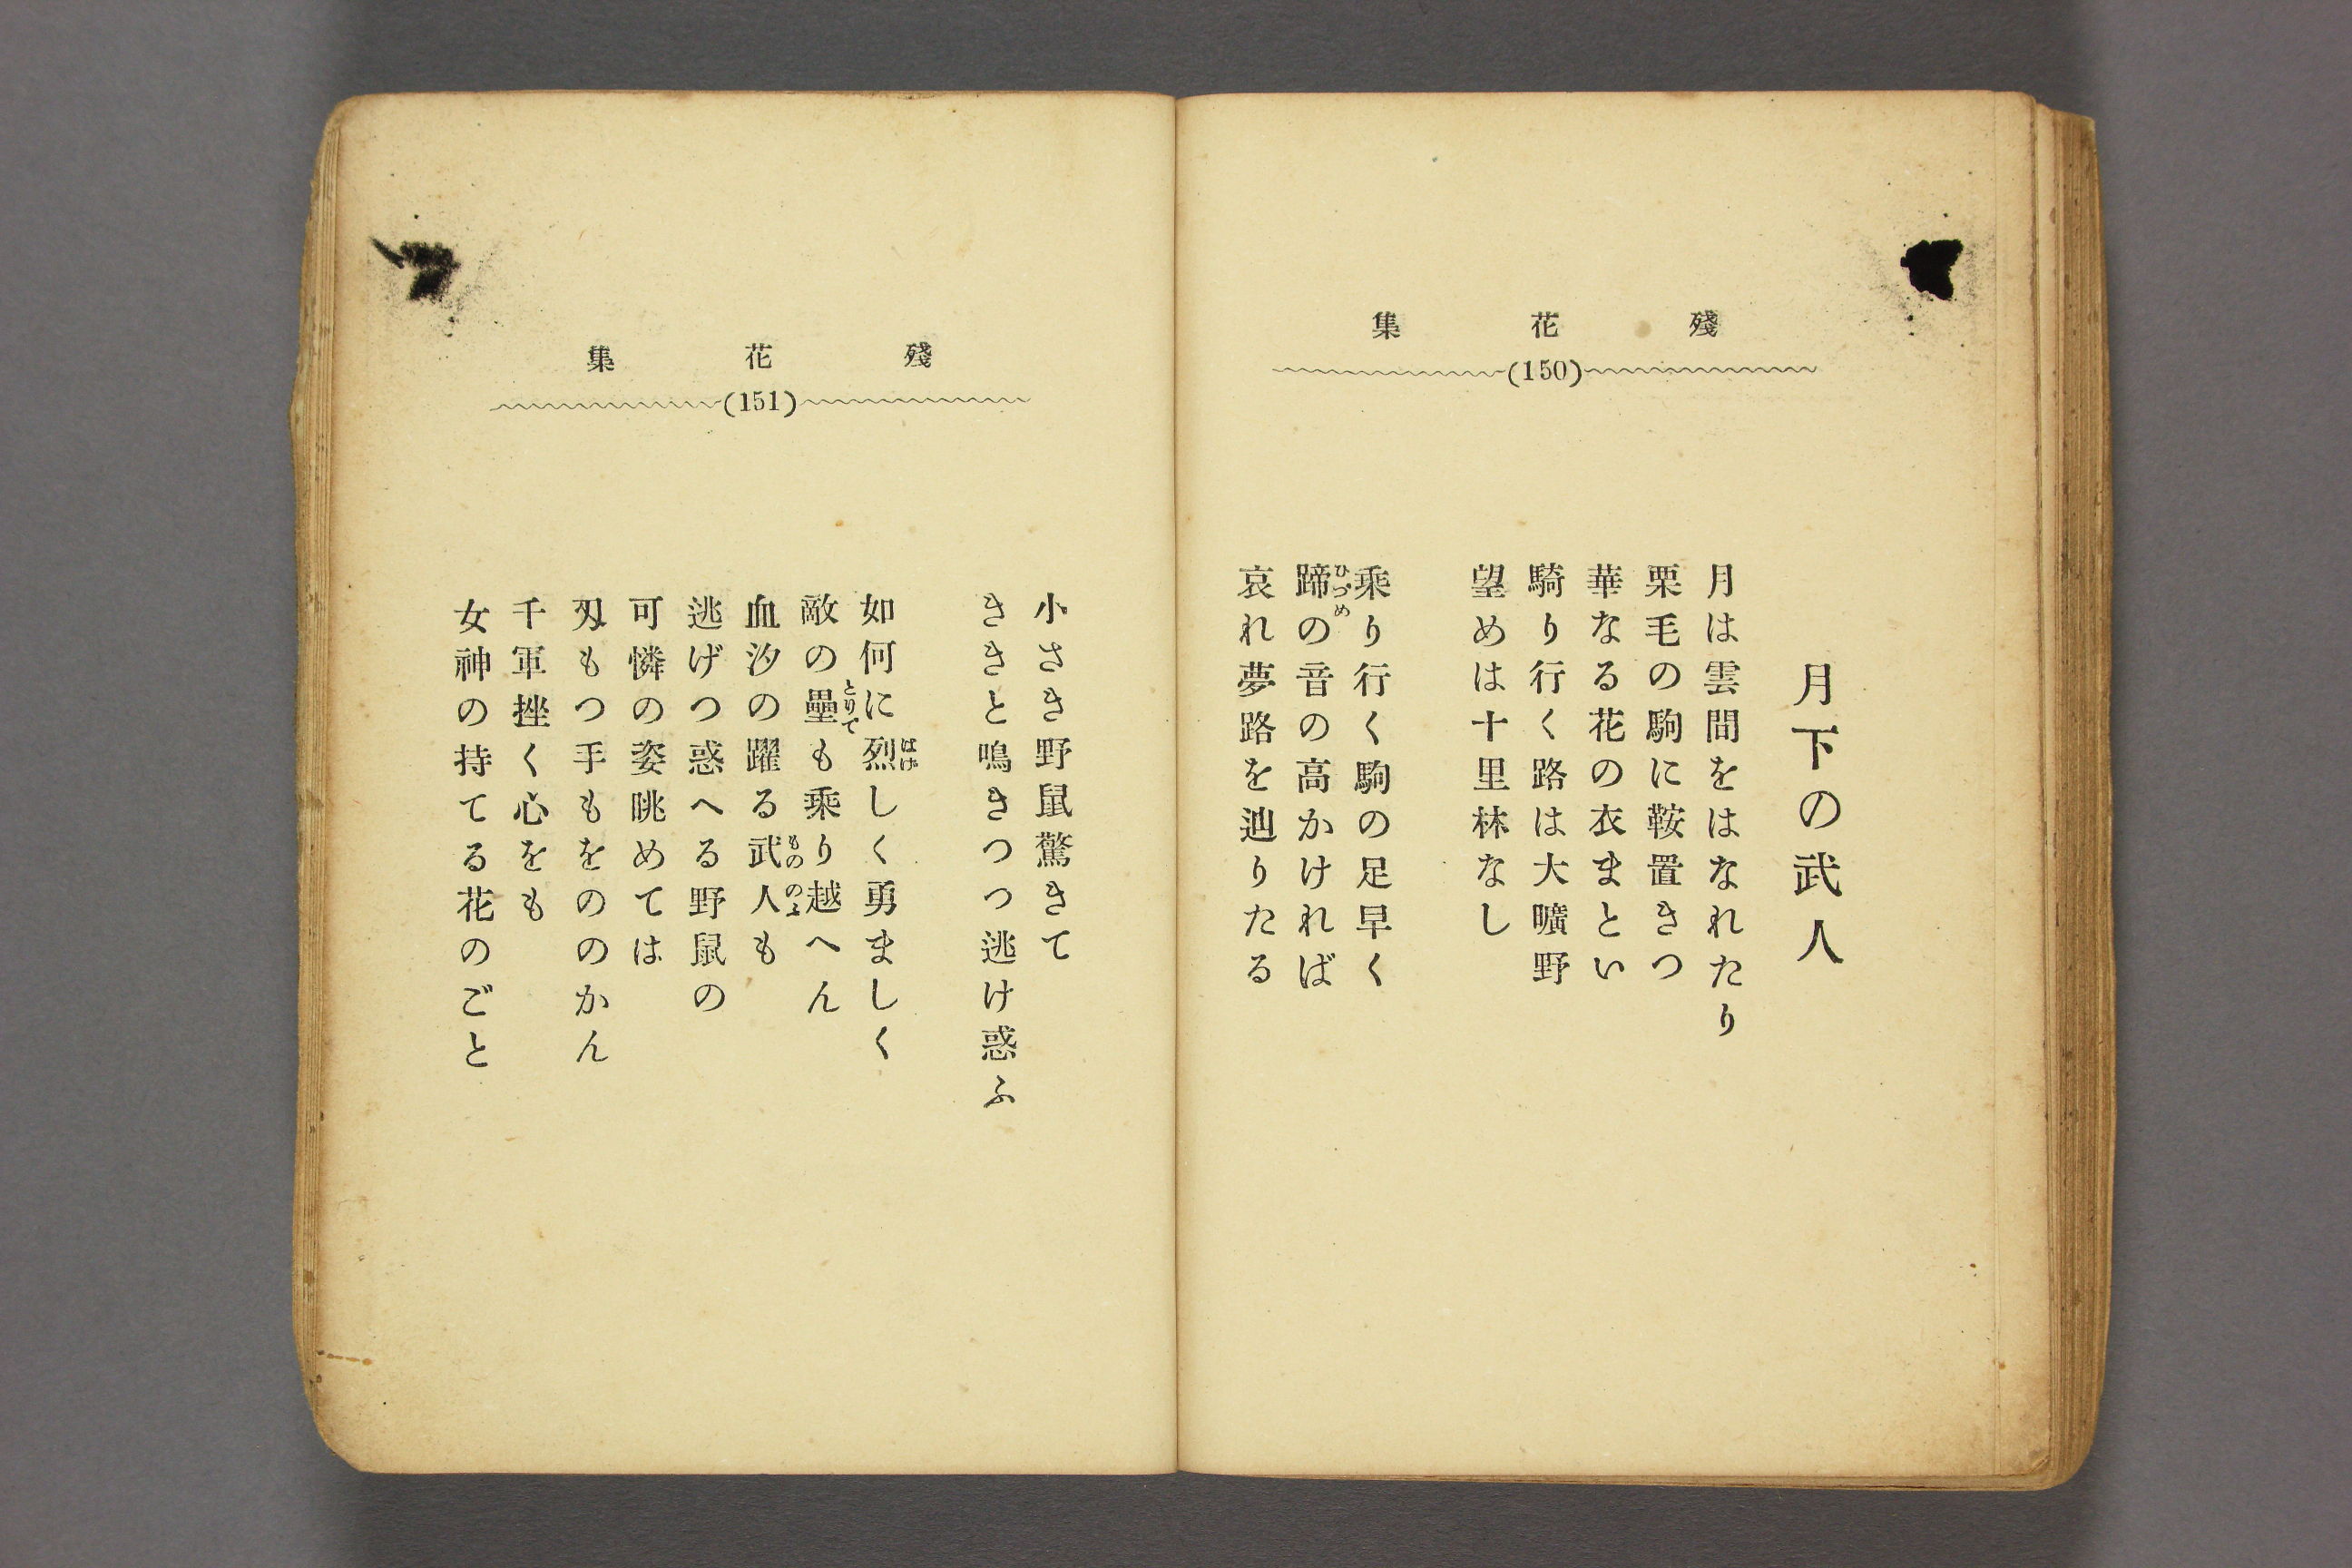 殘花集
(150)
月下の武人
月は雲間をはなれたり
栗毛の駒に鞍置きつ
華なる花の衣まとい
騎り行く路は大曠野
望めは十里林なし
乘り行く駒の足早く
蹄の音の高かければ
ひづめ
哀れ夢路を辿りたる
殘花集
(151)
小さき野鼠驚きて
ききと鳴きつつ逃け惑ふ
如何に烈しく勇ましく
はげ
敵の壘も乘り越へん
とりで
血汐の躍る武人も
もののふ
逃げつ惑へる野鼠の
可憐の姿眺めては
刄もつ手もをののかん
千軍挫く心をも
女神の持てる花のごと